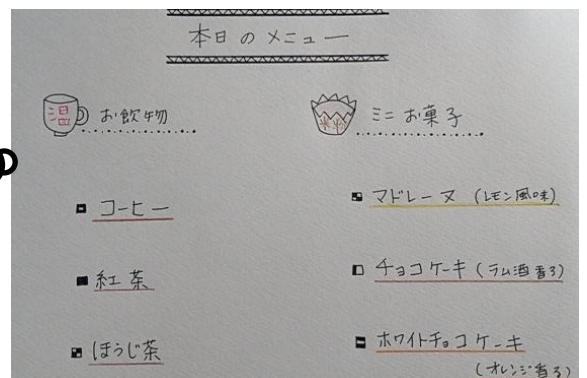 本日のメニュー
温 お飲物
コーヒー
紅茶
ほうじ茶
米粉 ミニお菓子
マドレーヌ (レモン風味)
チョコケーキ (ラム酒香る)
ホワイトチョコケーキ
(オレンジ香る)